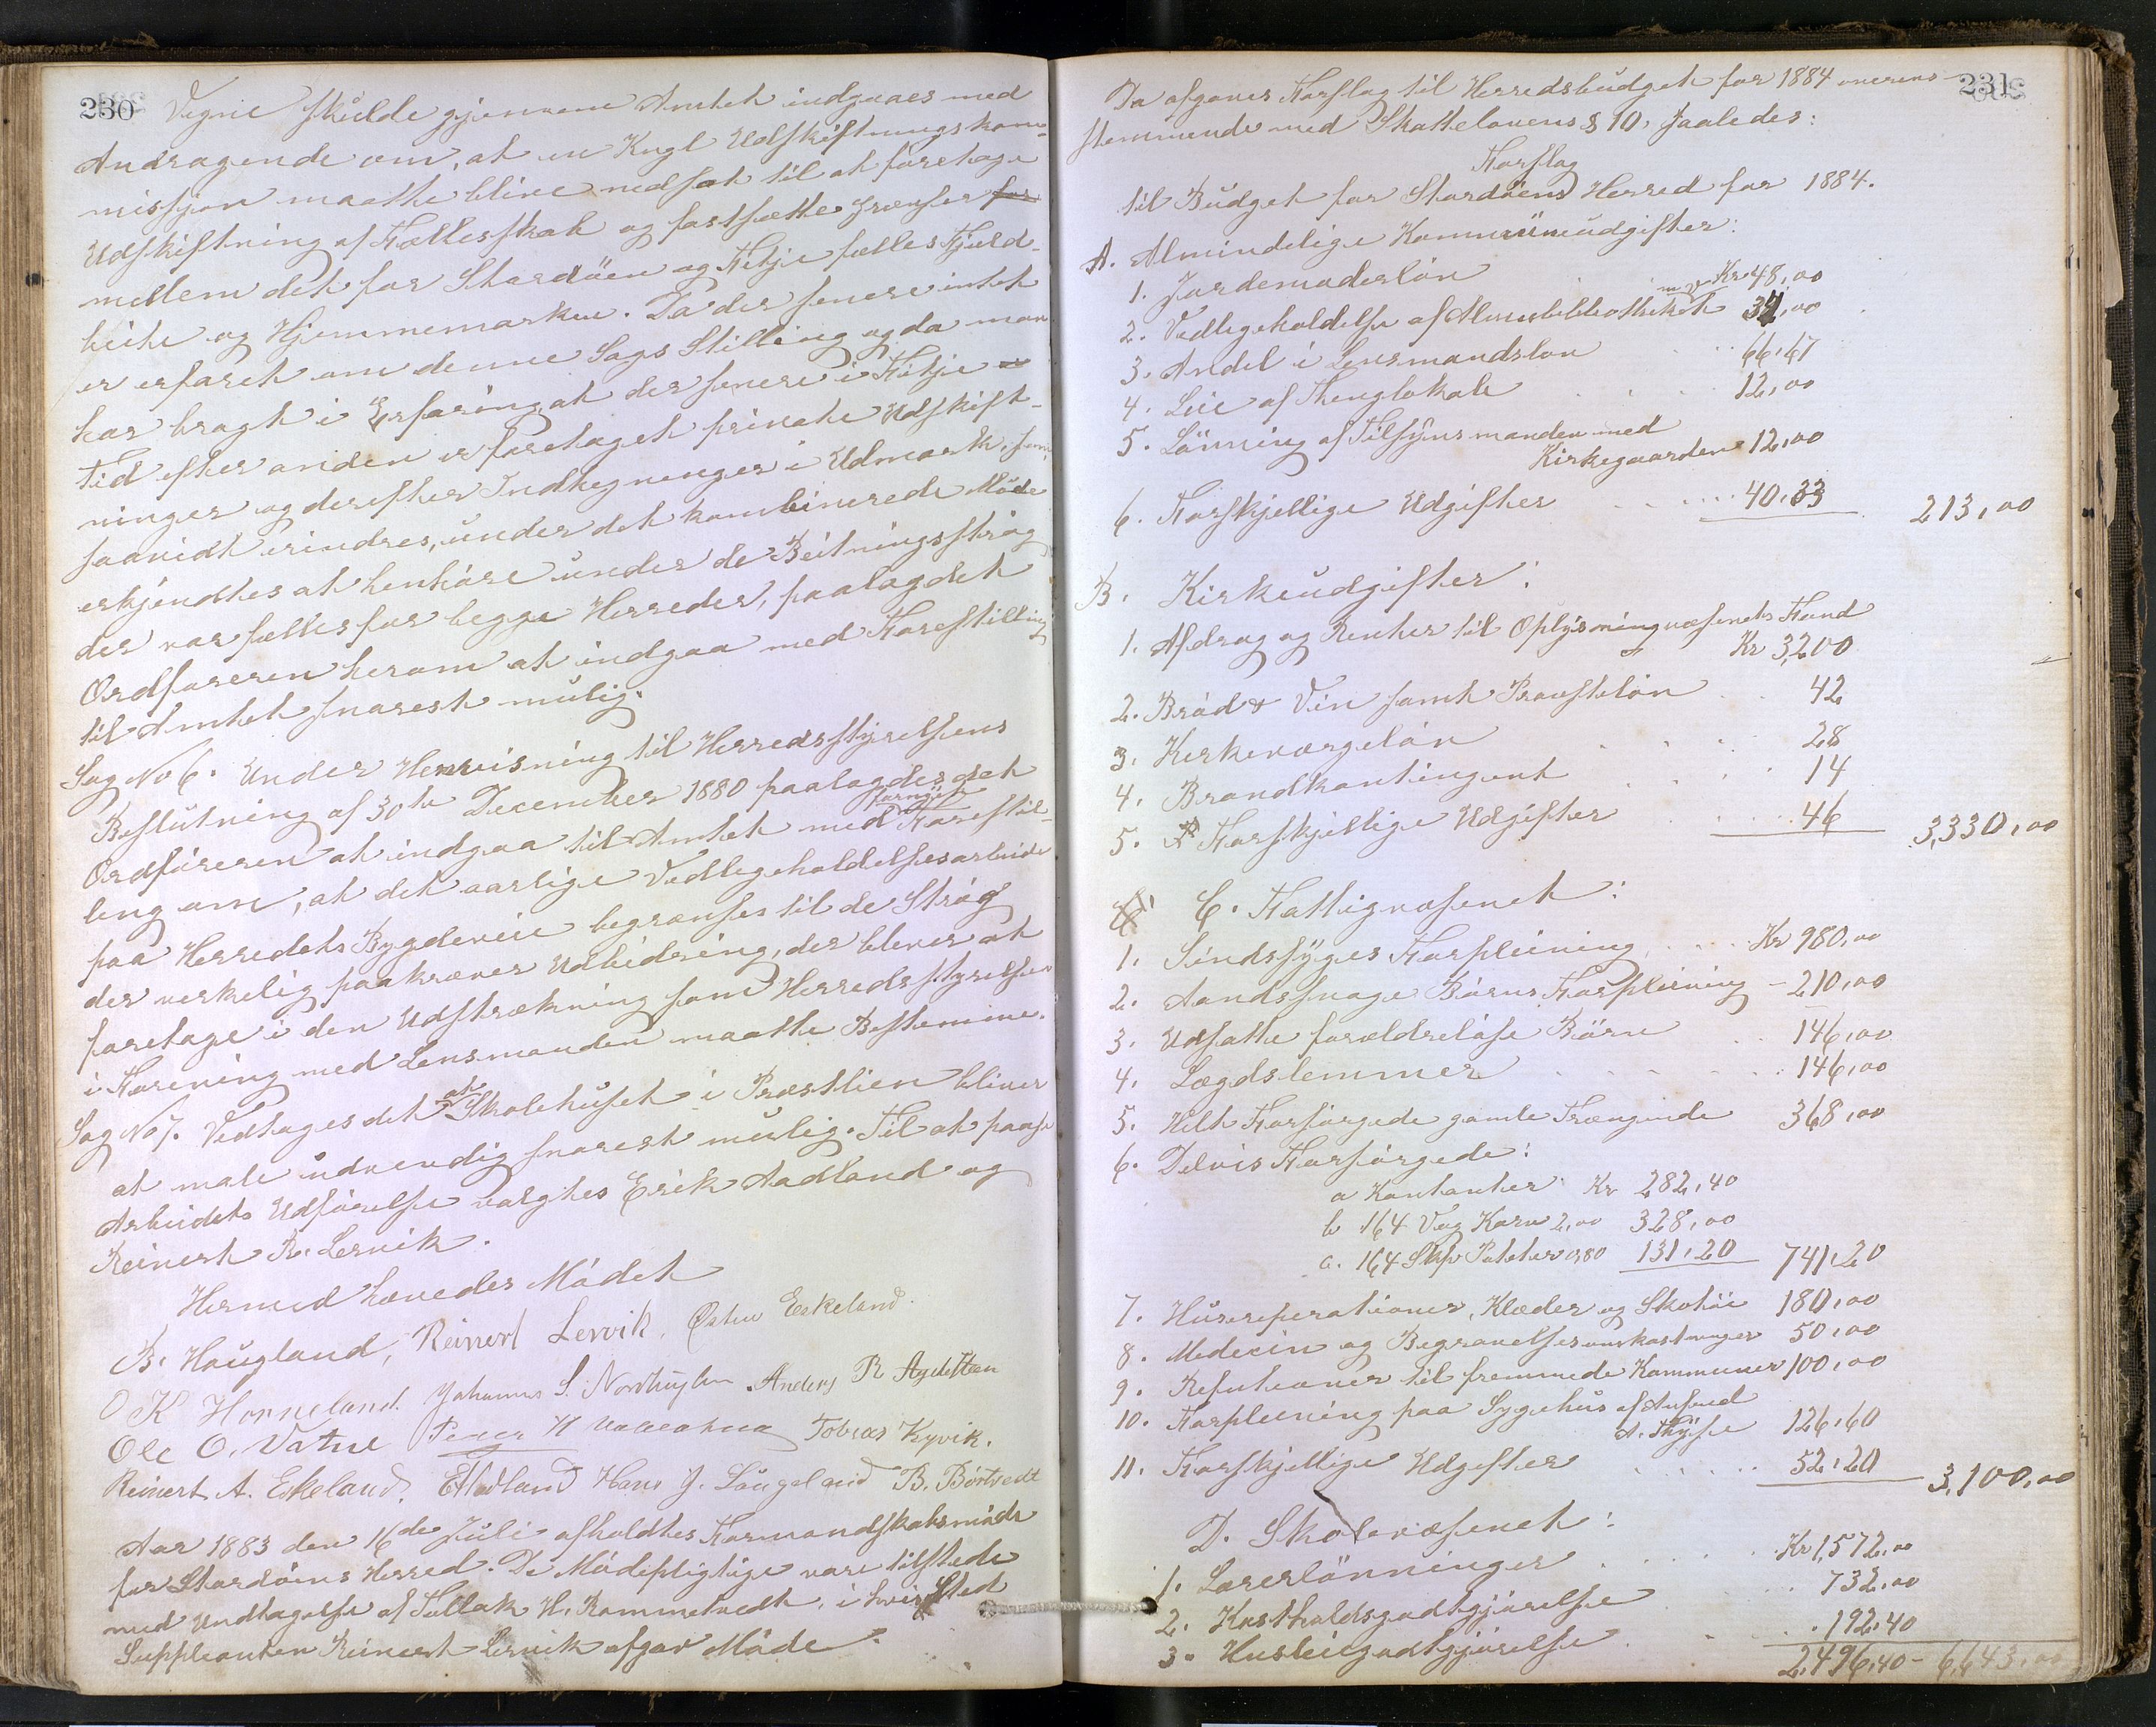 230
Vegne skulde gjennem Amtet indgaaes med
Andragende om, at en Kngl Udskiftningskom-
missjon maatte blive nedsat til at foretage
Udskiftning af Fællesskab og fastsætte Grænser for
mellem det for Stordöen og Fitje fælles Fjeld-
beite og Hjemmemarken. Da der senere intet
er erfaret om denne Sags Stilling og da man
har bragt i Erfaring, at der senere i Fitje
Tid efter anden er foretaget private Udskift-
ninger og derefter Indhegninger i Udmark, som,
saavidt erindres, under det kombinerede Möde
erkjendtes at henhöre under de Beitningsströg
der var fælles for begge Herreder, paalagdet
Ordföreren herom at indgaa med Forestilling
til Amtet snarest mulig.
Sag No 6. Under Henvisning til Herredsstyrelsens
Beslutning af 30te December 1880 paalagdes det
Ordföreren at indgaa til Amtet med fornyet Forestil-
ling om, at det aarlige Vedligeholdelsesarbeide
paa Herredets Bygdeveie begrænses til de Strög
der verkelig paakræver Udbedring, der bliver at
foretage i den Udstrækning som Herredsstyrelsen
i Forening med Lensmanden maatte Bestemme.
Sag No 7. Vedtages det at Skolehuset i Præstlien bliver
at male udvendig snarest mulig. Til at paase
Arbeidets Udförelse valgtes Erik Aadland og
Reinert R. Lervik.
Hermed hævedes Mödet
B. Haugland, Reinert Lervik, Østen Eskeland.
O K Horneland. Johannes S. Nordhuglen Anders R Agdestein
Ole O. Vatne Peder H Tobias Kyvik.
Reinert A. Eskeland, EAadland Hans J. Langeland B. Börtvedt
Aar 1883 den 16de Juli afholdtes Formandskabsmöde
for Stordöens Herred. De Mödepligtige vare tilstede
med Undtagelse af Tollak H. Rommetvedt, i hvis Sted
Suppleanten Reinert Lervik afgav Möde.
231
Da afgaves Forslag til Herredsbudget for 1884 overens-
stemmende med Skattelovens § 10, saaledes:
Forslag
til Budget for Stordöens Herred for 1884.
A. Almindelige Kommuneudgifter:
1. Jordemoderlön Kr 48,00
2. Vedligeholdelse af Almuebibliotheket 34,00
3. Andel i Lensmandslön 66,67
4. Leie af Thinglokale 12,00
5. Lönning af Tilsynsmanden med
Kirkegaarden 12,00
6. Forskjellige Udgifter 40,33 213,00
B. Kirkeudgifter:
1. Afdrag og Renter til Oplysningvæsenets Fond
Kr 3,200
2. Bröd & Vin samt Provstelön 42
3. Kirkeværgelön 28
4. Brandkontingent 14
5. Forskjellige Udgifter 46 3,330,00
C. Fattigvæsenet:
1. Sindssyges Forpleining Kr 980,00
2. Aandssvage Börns Forpleining - 210,00
3. Udsatte forældrelöse Börn 146,00
4. Lægdslemmer 146,00
5. Helt Forsörgede gamle Trængende 368,00
6. Delvis Forsörgede:
a Kontanter Kr 282,40
b 164 Vog Korn 2,00 328,00
c. 164 Skp Poteter 0,80 131,20 741,20
7. Husreperationer, Klæder og Skotöi 180,00
8. Medecin og Begravelsesomkostninger 50,00
9. Refutioner til fremmede Kommuner 100,00
10. Forpleining paa Sygehus af
A. Thyse 126,60
11. Forskjellige Udgifter 52,20 3,100,00
D. Skolevæsenet:
1. Lærerlönninger Kr 1,572,00
2. Kostholdsgodtgjörelse 732,00
3. Husleigodtgjörelse 192,40
2,496,40 - 6,643,00